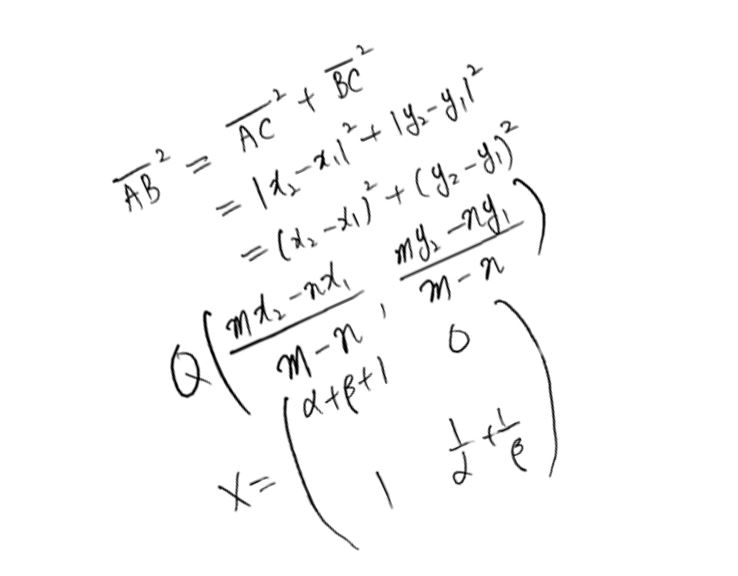 $\overline{AB}^2 = \overline{AC}^2 + \overline{BC}^2$
$= |x_2 - x_1|^2 + |y_2 - y_1|^2$
$= (x_2 - x_1)^2 + (y_2 - y_1)^2$
$Q\left(\frac{mx_2 - nx_1}{m-n}, \frac{my_2 - ny_1}{m-n}\right)$
$X = \begin{pmatrix} \alpha+\beta+1 & 0 \\ 1 & \frac{1}{\alpha}+\frac{1}{\beta} \end{pmatrix}$